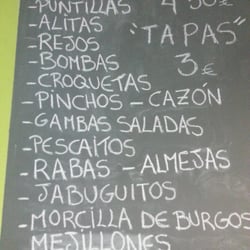 -PUNTILLAS 4'50€
-ALITAS
-REJOS "TAPAS"
-BOMBAS 3€
-CROQUETAS
-PINCHOS - CAZÓN
-GAMBAS SALADAS
-PESCAITOS
-RABAS - ALMEJAS
-JABUGUITOS
-MORCILLA DE BURGOS
MEJILLONES